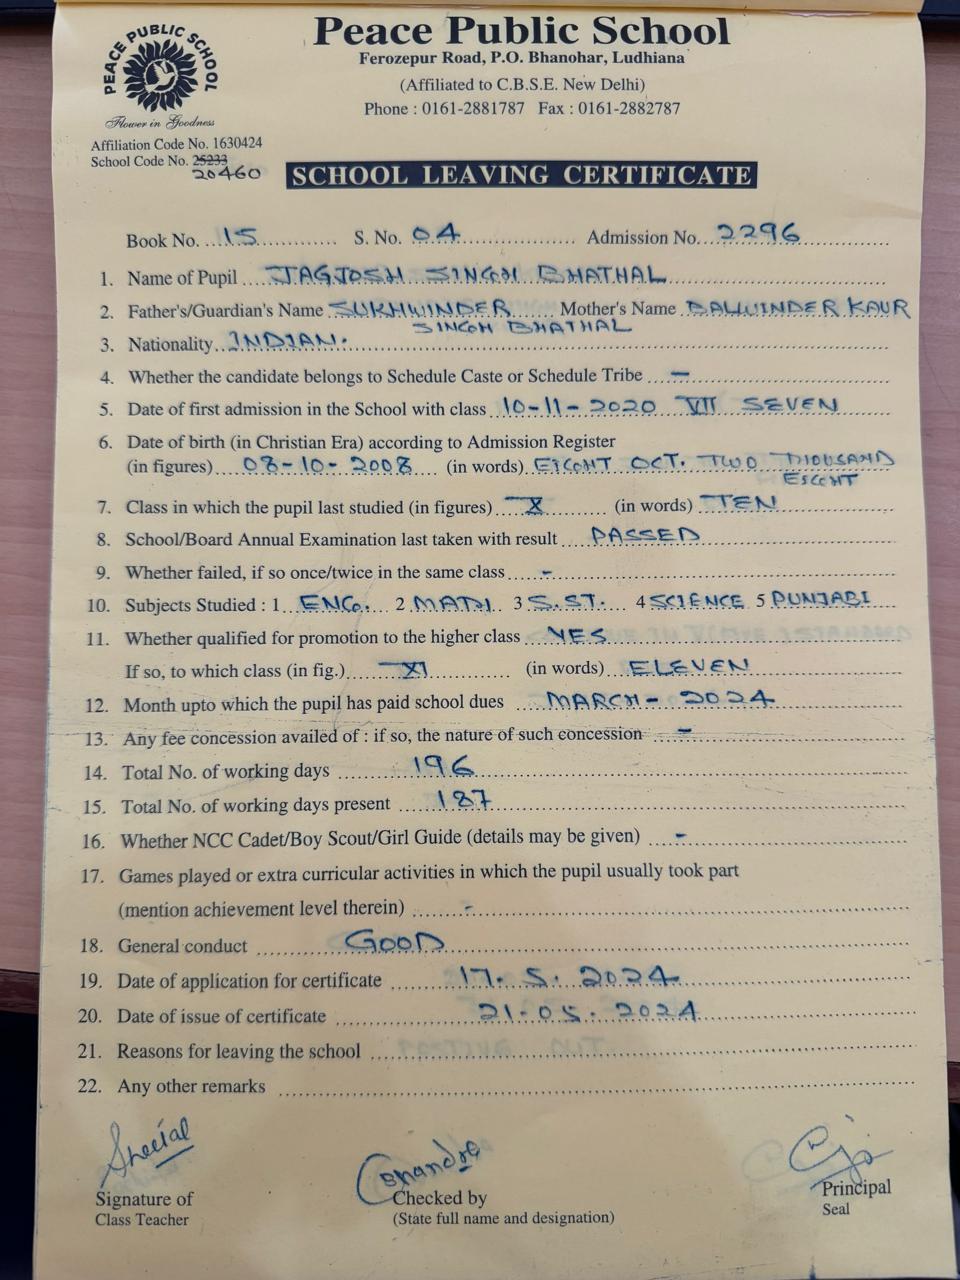 PEACE PUBLIC SCHOOL
Flower in Goodness
Peace Public School
Ferozepur Road, P.O. Bhanohar, Ludhiana
(Affiliated to C.B.S.E. New Delhi)
Phone : 0161-2881787 Fax : 0161-2882787
Affiliation Code No. 1630424
School Code No. 25233
20460
SCHOOL LEAVING CERTIFICATE
Book No. 15 S. No. 04 Admission No. 2296
1. Name of Pupil JAGJOSH SINGH BHATHAL
2. Father's/Guardian's Name SUKHWINDER Mother's Name BALWINDER KAUR
SINGH BHATHAL
3. Nationality INDIAN.
4. Whether the candidate belongs to Schedule Caste or Schedule Tribe –
5. Date of first admission in the School with class 10-11-2020 VII SEVEN
6. Date of birth (in Christian Era) according to Admission Register
(in figures) 08-10-2008 (in words) EIGHT OCT. TWO THOUSAND
EIGHT
7. Class in which the pupil last studied (in figures) X (in words) TEN
8. School/Board Annual Examination last taken with result PASSED
9. Whether failed, if so once/twice in the same class -
10. Subjects Studied : 1 ENG. 2 MATH 3 S.ST. 4 SCIENCE 5 PUNJABI
11. Whether qualified for promotion to the higher class YES
If so, to which class (in fig.) XI (in words) ELEVEN
12. Month upto which the pupil has paid school dues MARCH - 2024
13. Any fee concession availed of : if so, the nature of such concession -
14. Total No. of working days 196
15. Total No. of working days present 187
16. Whether NCC Cadet/Boy Scout/Girl Guide (details may be given) -
17. Games played or extra curricular activities in which the pupil usually took part
(mention achievement level therein) -
18. General conduct GOOD
19. Date of application for certificate 17.5.2024
20. Date of issue of certificate 21.05.2024
21. Reasons for leaving the school
22. Any other remarks
Signature of Checked by Principal
Class Teacher (State full name and designation) Seal